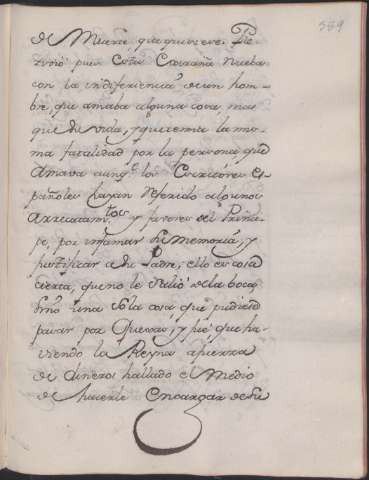 589
de Muerte que quisiere. Re-
civió pues esta estraña nueba
con la indiferiencia de un hom-
bre que amaba alguna cosa mas
que su vida, y que temia la mis-
ma fatalidad por la persona que
Amava aunq.e los Escritores Es-
pañoles hayan referido algunos
Arrevatam.tos y furores del Princi-
pe, por infamar su memoria, y
justificar a su Padre, ello es cosa
cierta, que no le salió de la boca
sino una sola cosa que pudiese
pasar por Quexas, y fué que ha-
viendo la Reyna a fuerza
de dinero hallado el Medio
de hacerle encargar de su